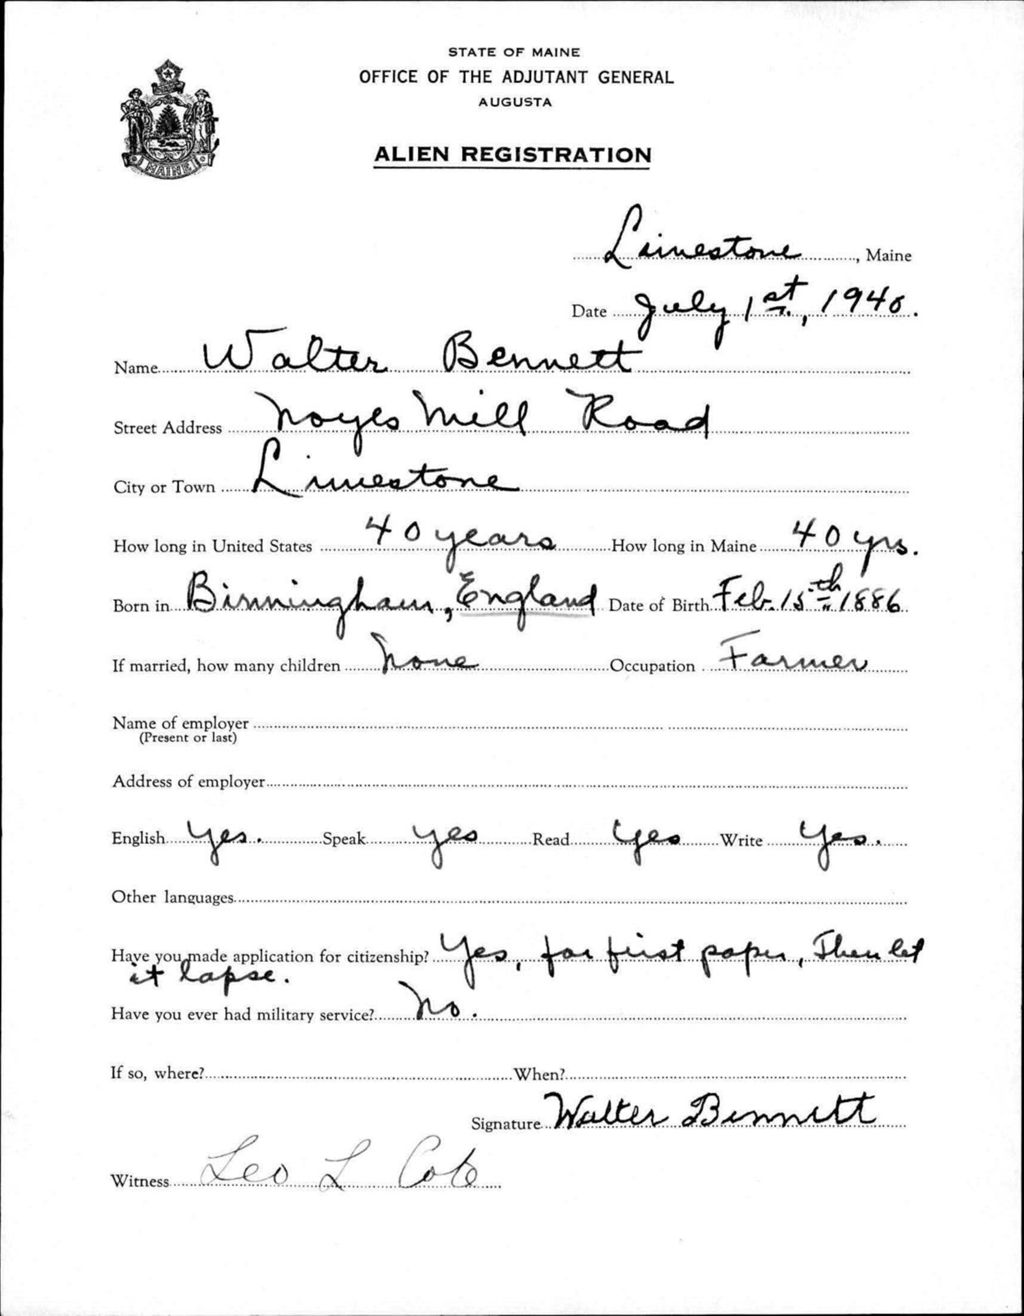 STATE OF MAINE
OFFICE OF THE ADJUTANT GENERAL
AUGUSTA
ALIEN REGISTRATION
MAINE
Limestone, Maine
Date July 1st, 1940.
Name Walter Bennett
Street Address Noyes Mill Road
City or Town Limestone
How long in United States 40 years How long in Maine 40 yrs.
Born in Birmingham, England Date of Birth Feb. 15th 1886
If married, how many children None Occupation Farmer
Name of employer
(Present or last)
Address of employer
English Yes. Speak yes Read Yes Write Yes.
Other languages
Have you made application for citizenship? Yes, for first paper, Then let
it lapse.
Have you ever had military service? No.
If so, where? When?
Signature Walter Bennett
Witness Leo L Cote